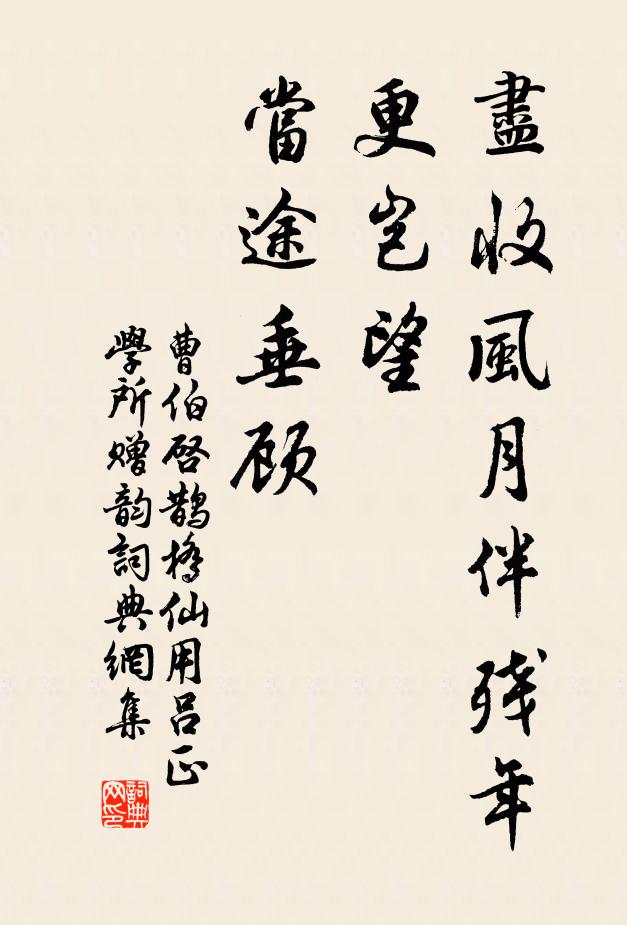 盡收風月伴残年
更岂望
當途垂顾
曹伯啓鹊橋仙用呂正
學所赠韵詞典網集
詞典网印